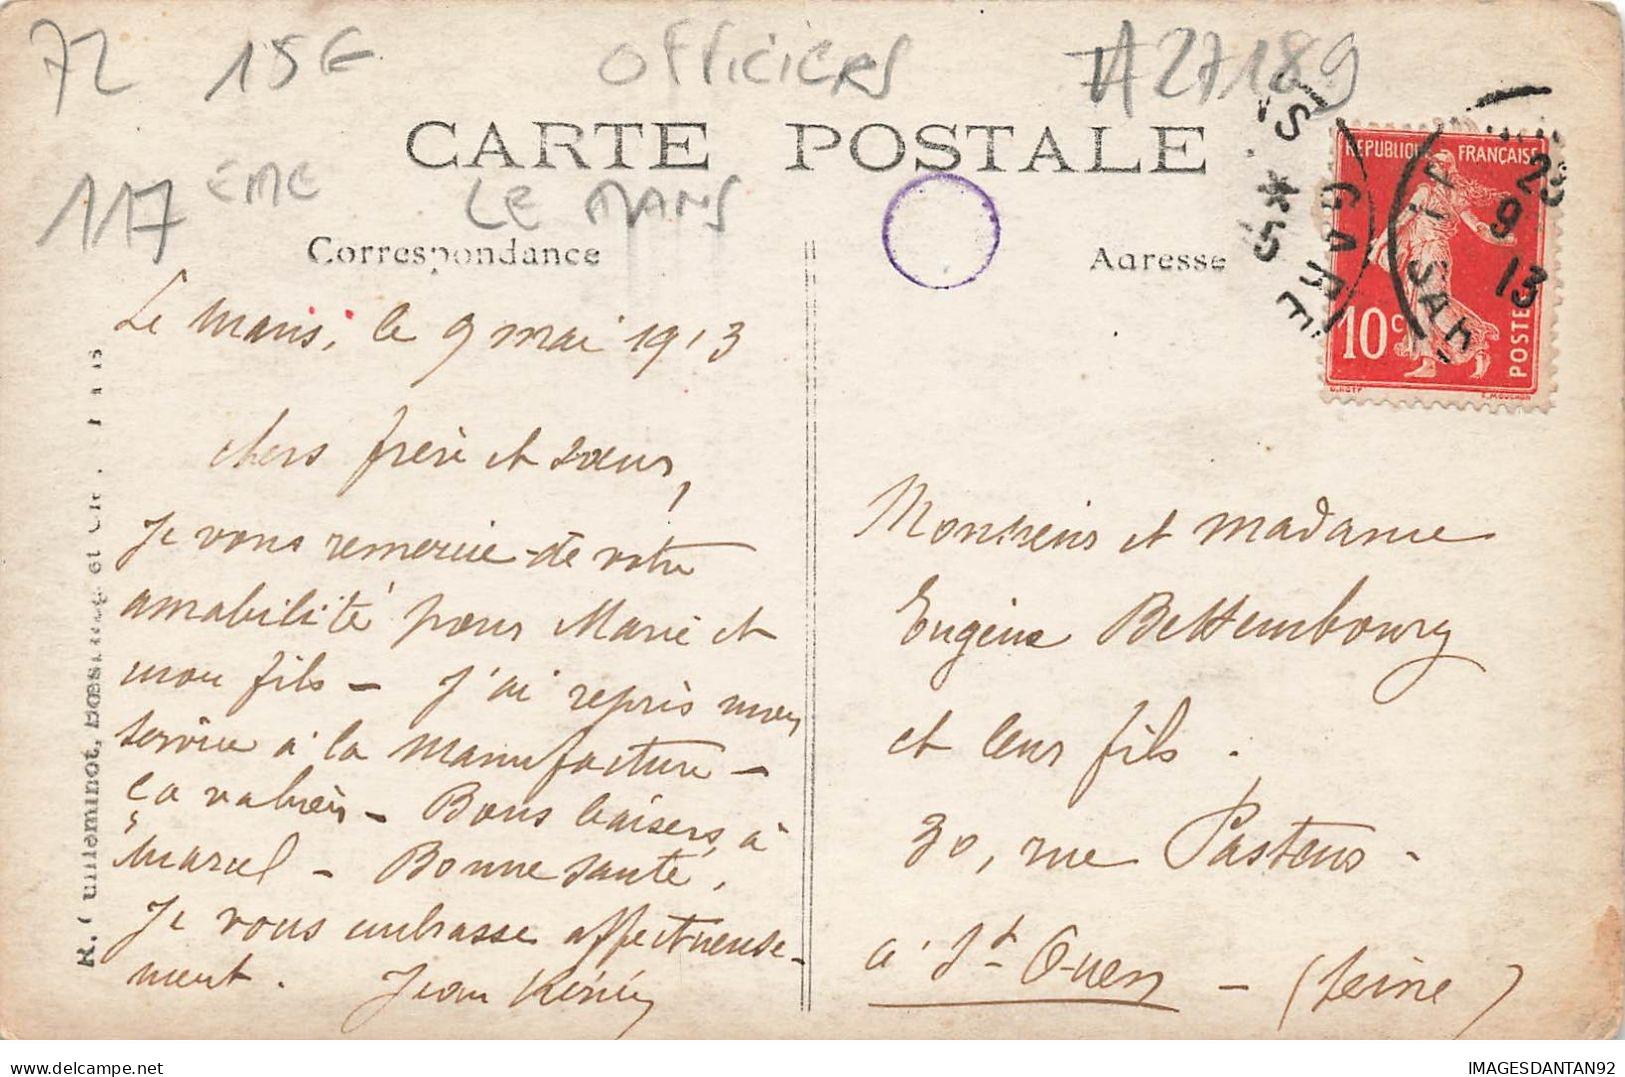 72 15€ OFFICIERS A27189
CARTE POSTALE
117 EME LE MANS
Correspondance
Adresse
Le Mans, le 9 mai 1913
chers frère et sœur,
Je vous remercie de votre
amabilité pour Marie et
mon fils – J'ai repris mon
service à la Manufacture –
ça va bien – Bons baisers à
Marcel – Bonne santé,
Je vous embrasse affectueuse-
ment. Jean
Monsieur et Madame
Eugène Bettembourg
et leur fils.
30, rue Pasteur –
à St Ouen – (Seine)
REPUBLIQUE FRANÇAISE
10 c
POSTES
GARE
SARTHE
9
13
R. Guilleminot, Bœspflug et Cie. Paris
IMAGESDANTAN92